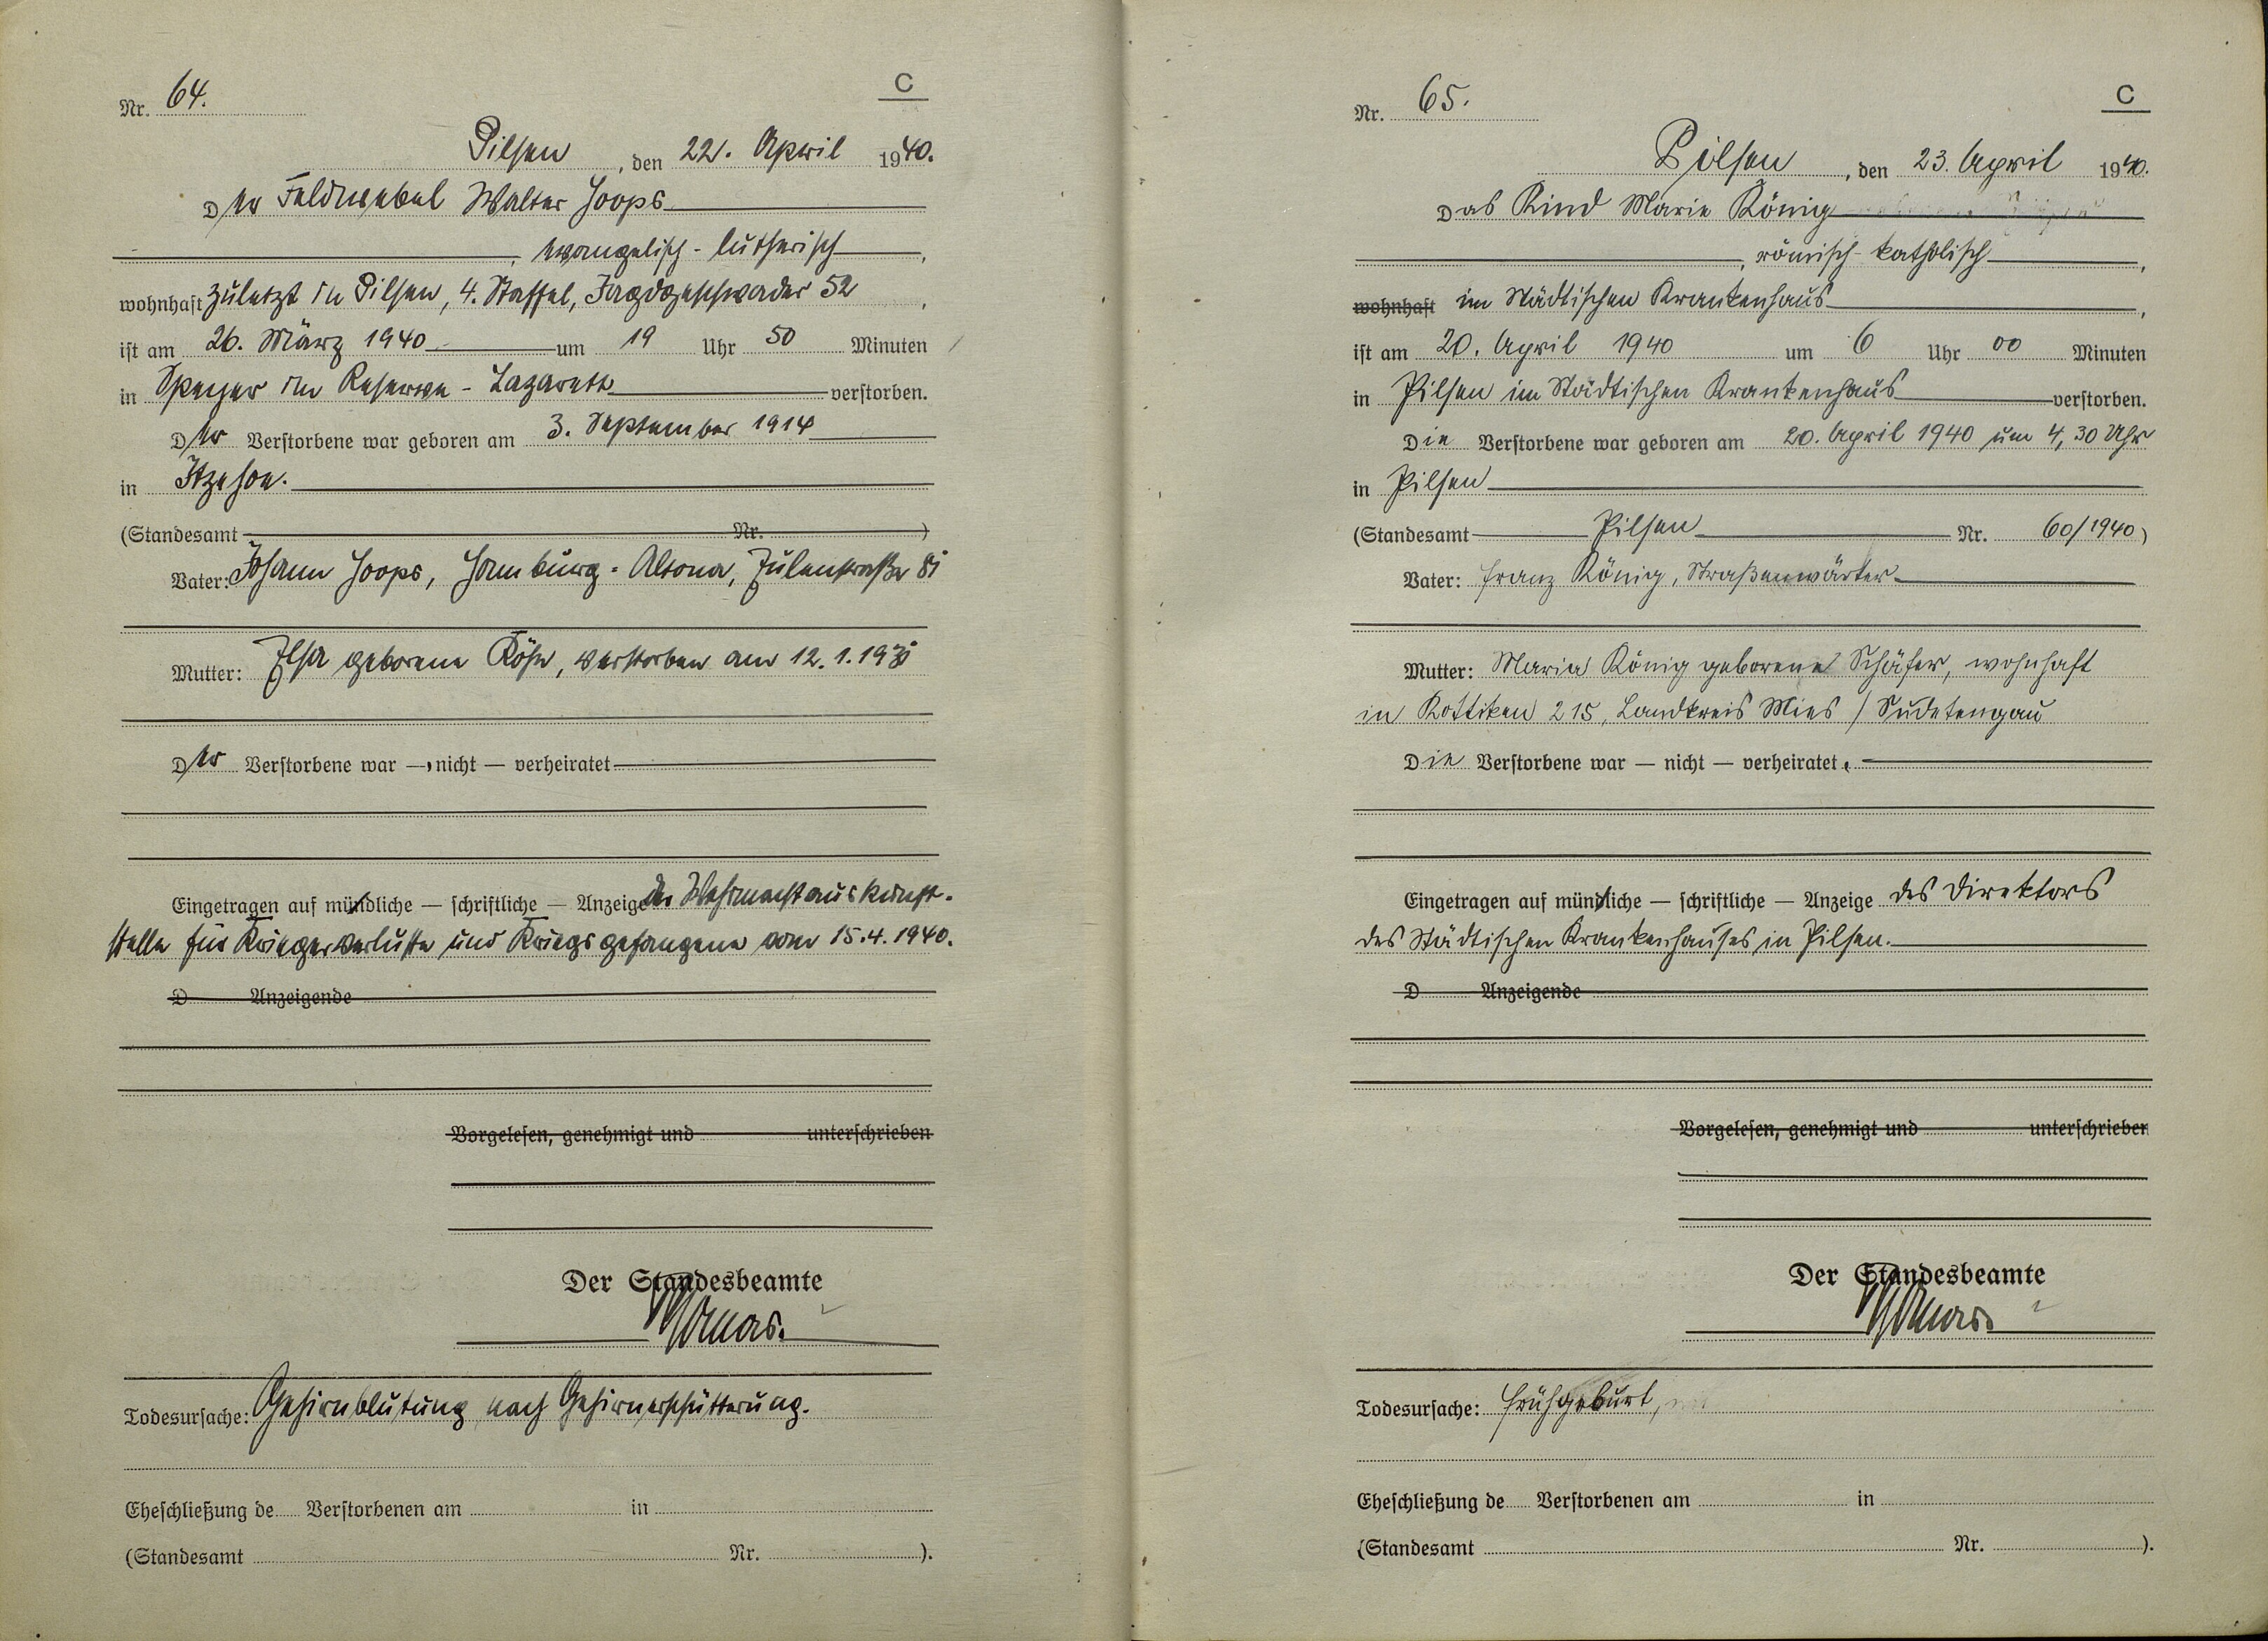 C
Nr. 64.
Pilsen, den 22. April 1940.
Der Feldwebel Walter Hoops
, evangelisch-lutherisch,
wohnhaft zuletzt in Pilsen, 4. Staffel, Jagdgeschwader 52,
ist am 26. März 1940 um 19 Uhr 50 Minuten
in Speyer im Reserve-Lazarett verstorben.
Der Verstorbene war geboren am 3. September 1914
in Itzehoe.
(Standesamt Nr. )
Vater: Johann Hoops, Hamburg-Altona,
Mutter: geborene verstorben am 12.1.
Der Verstorbene war — nicht — verheiratet
Eingetragen auf mündliche — schriftliche — Anzeige der Wehrmachtauskunft-
stelle für Kriegerverluste und Kriegsgefangene vom 15.4.1940.
D Anzeigende
Vorgelesen, genehmigt und unterschrieben
Der Standesbeamte
Todesursache: Gehirnblutung nach Gehirnerschütterung.
Eheschließung de Verstorbenen am in
(Standesamt Nr. ).
C
Nr. 65.
Pilsen, den 23. April 1940.
Das Kind Marie König
, römisch-katholisch,
wohnhaft im Städtischen Krankenhaus,
ist am 20. April 1940 um 6 Uhr 00 Minuten
in Pilsen im Städtischen Krankenhaus verstorben.
Die Verstorbene war geboren am 20. April 1940 um 4,30 Uhr
in Pilsen
(Standesamt Pilsen Nr. 60/1940)
Vater: Franz König, Straßenwärter
Mutter: Maria König geborene Schäfer, wohnhaft
in Kottiken 215, Landkreis Mies / Sudetengau
Die Verstorbene war — nicht — verheiratet.
Eingetragen auf mündliche — schriftliche — Anzeige des Direktors
des Städtischen Krankenhauses in Pilsen.
D Anzeigende
Vorgelesen, genehmigt und unterschrieben
Der Standesbeamte
Todesursache: Frühgeburt,
Eheschließung de Verstorbenen am in
(Standesamt Nr. ).